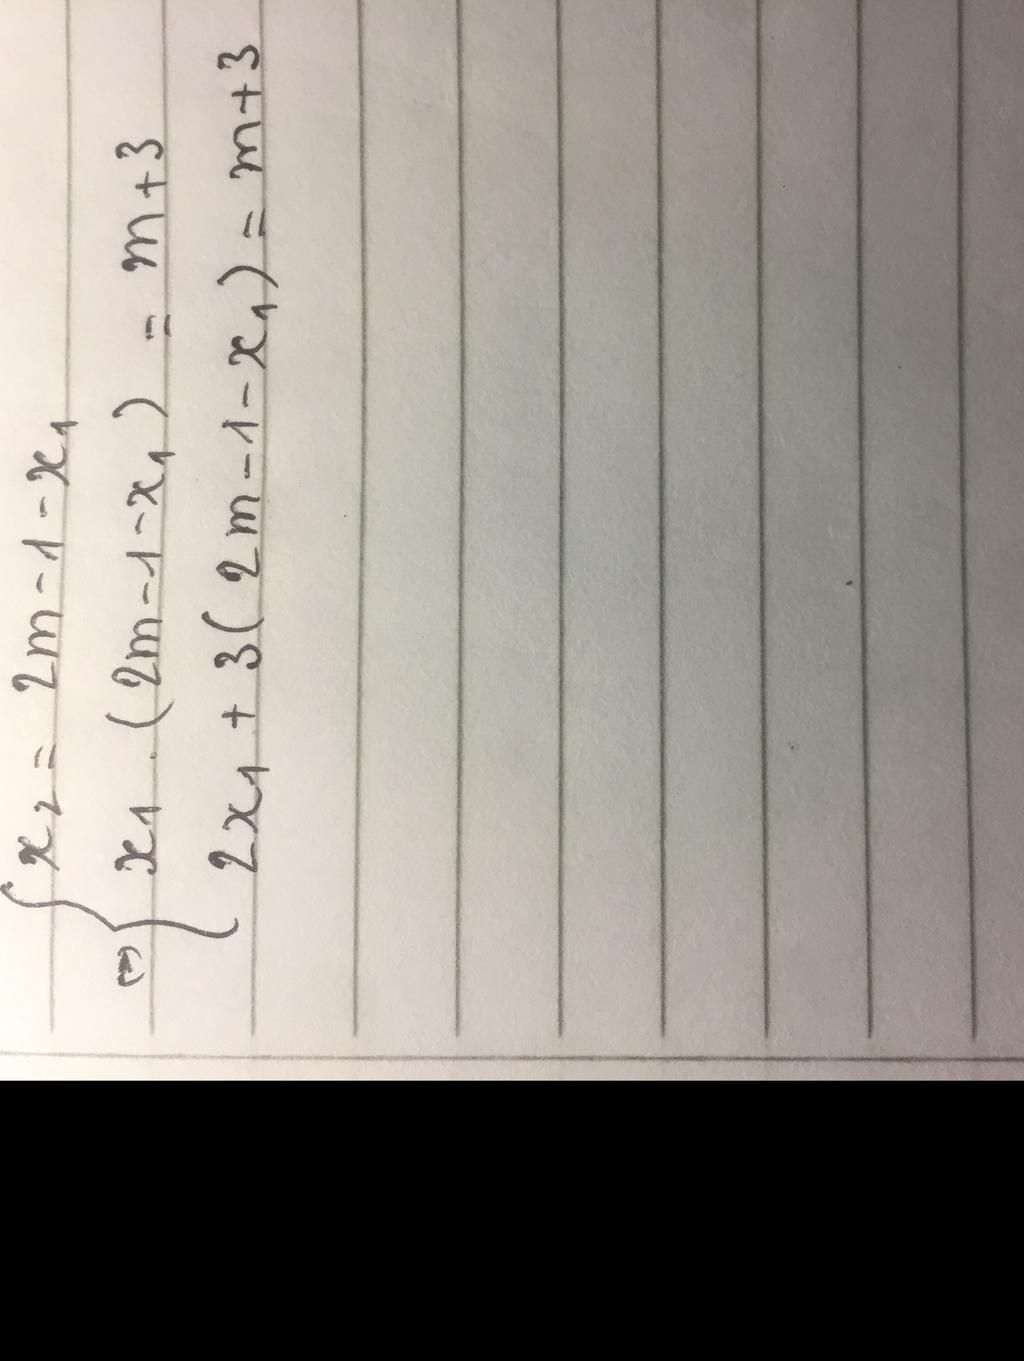 x₂ = 2m - 1 - x₁
(=) x₁ . (2m - 1 - x₁) = m + 3
2x₁ + 3(2m - 1 - x₁) = m + 3